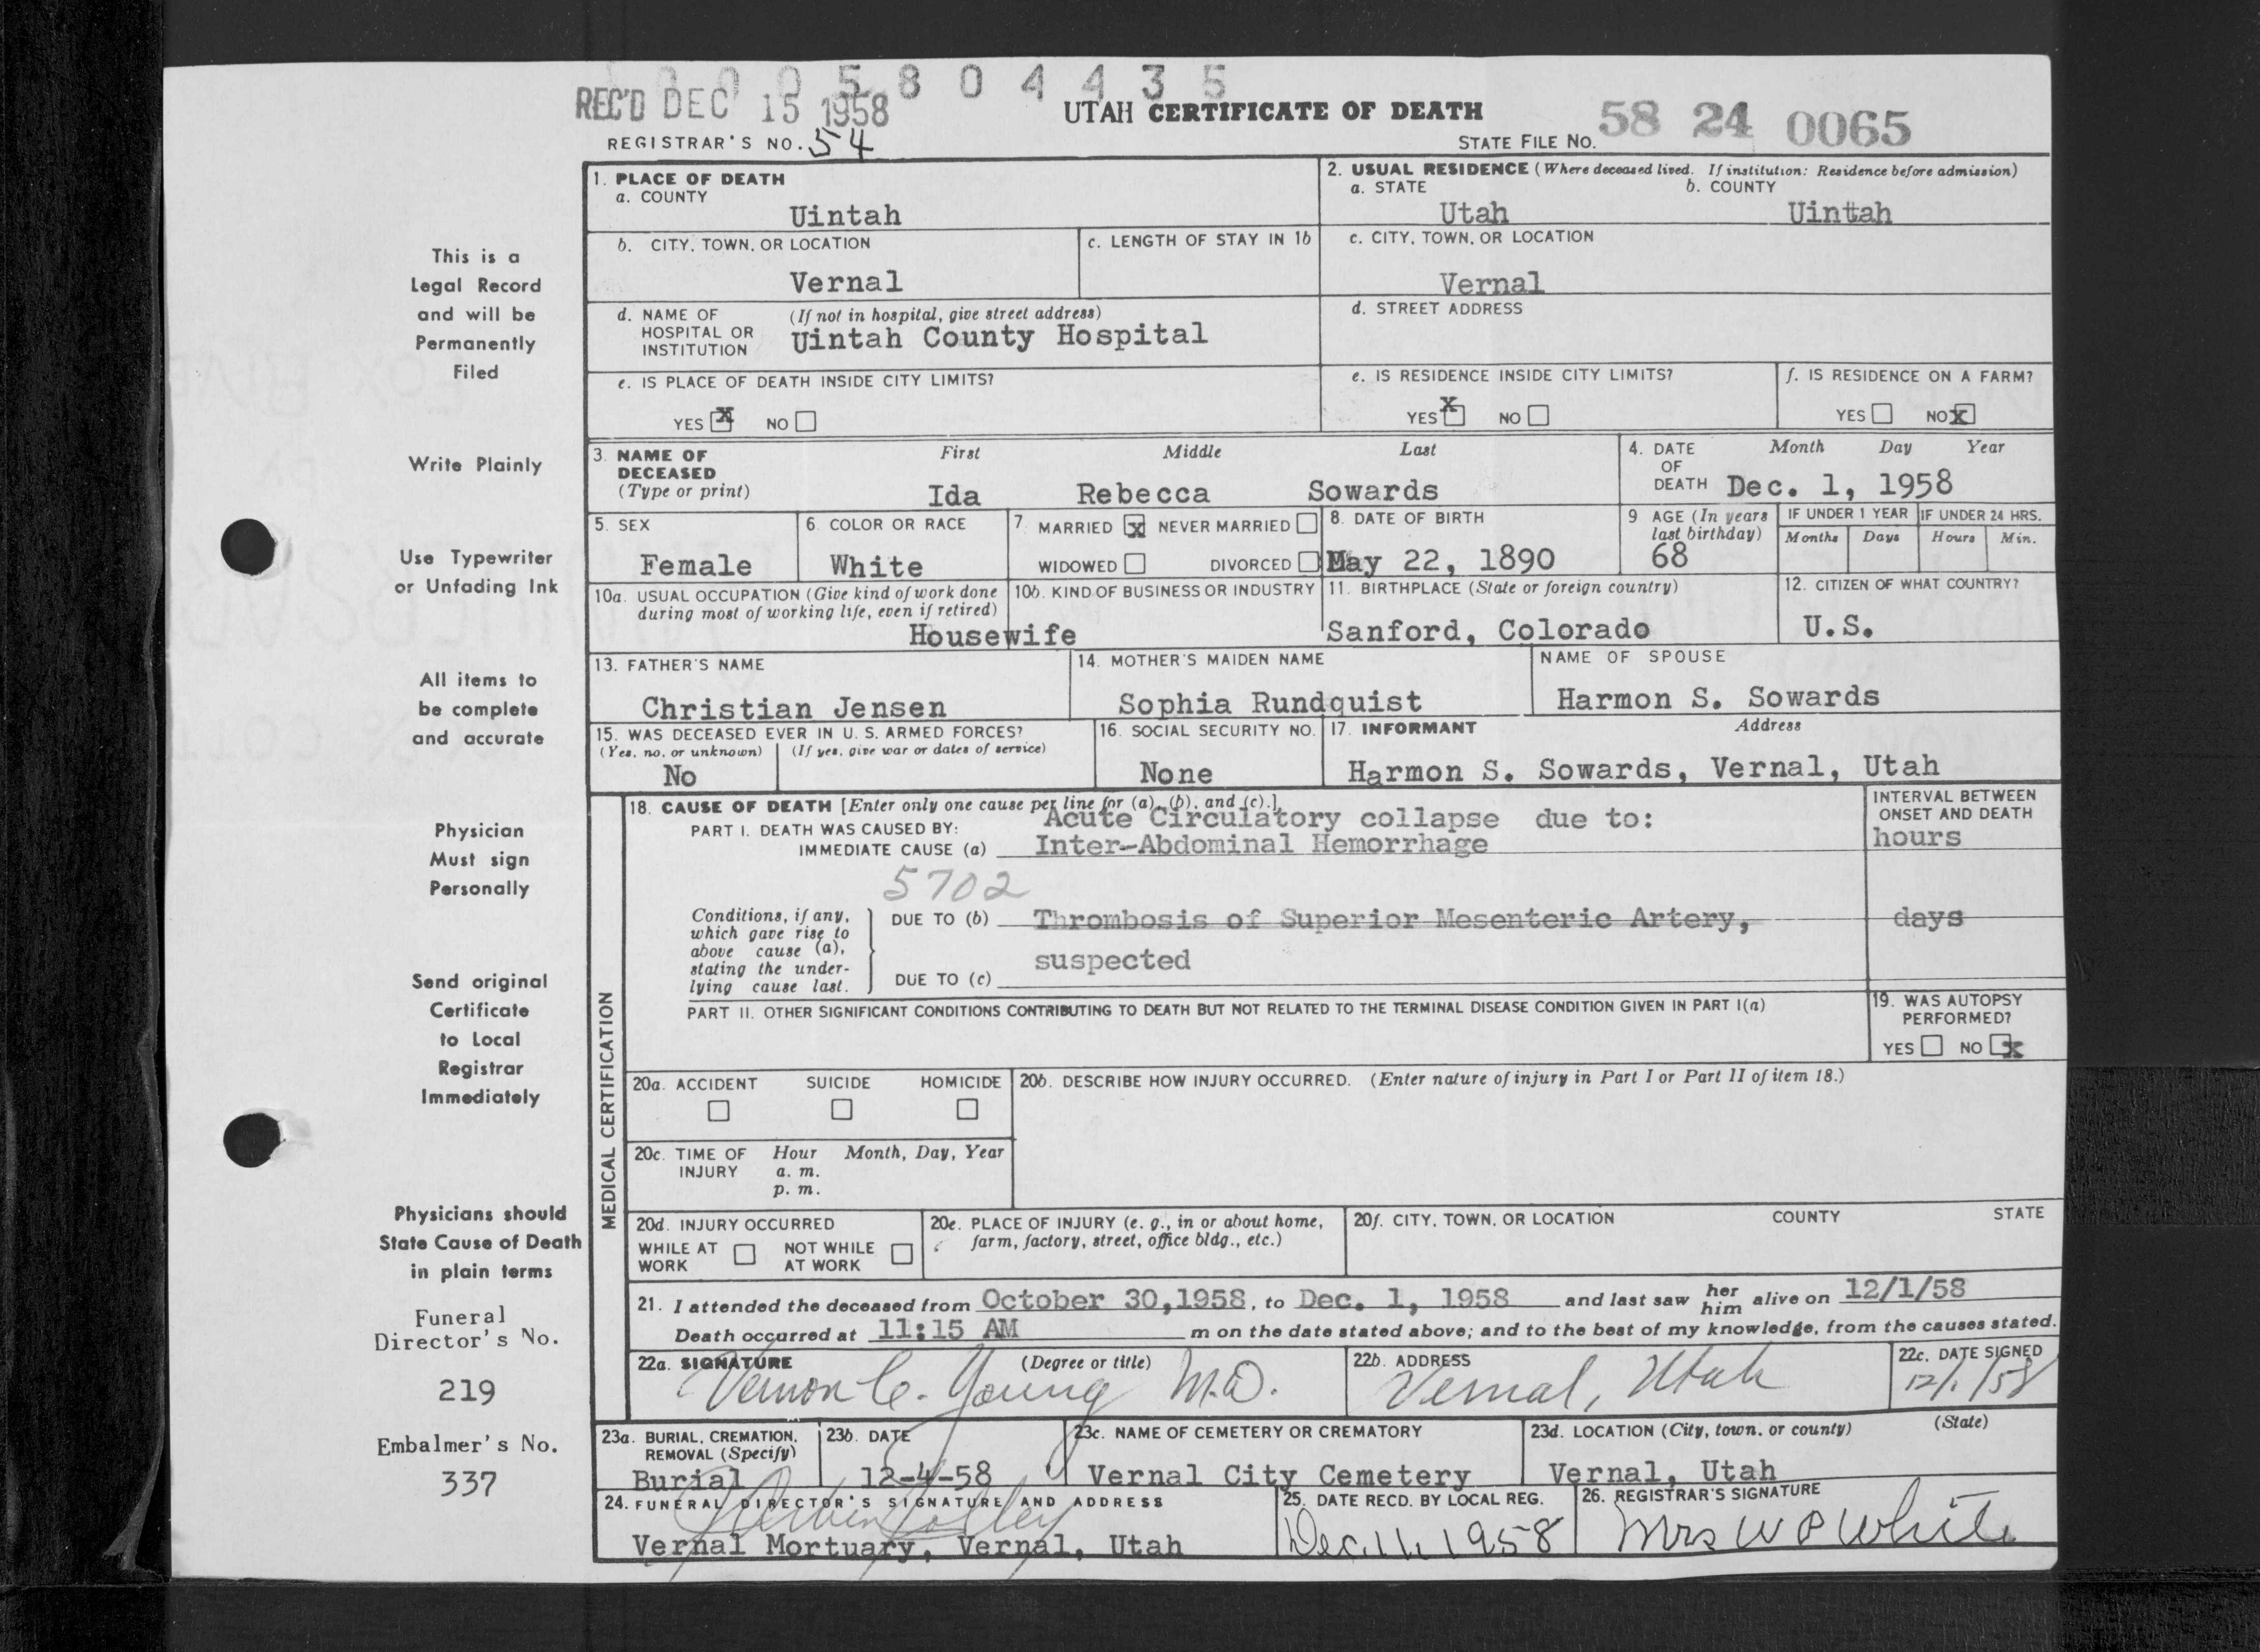 0 0 0 5 8 0 4 4 3 5
REC'D DEC 15 1958
UTAH CERTIFICATE OF DEATH
REGISTRAR'S NO. 54
STATE FILE NO. 58 24 0065
1. PLACE OF DEATH
a. COUNTY
Uintah
2. USUAL RESIDENCE (Where deceased lived. If institution: Residence before admission)
a. STATE b. COUNTY
Utah Uintah
b. CITY, TOWN, OR LOCATION
Vernal
c. LENGTH OF STAY IN 1b
c. CITY, TOWN, OR LOCATION
Vernal
d. NAME OF (If not in hospital, give street address)
HOSPITAL OR
INSTITUTION Uintah County Hospital
d. STREET ADDRESS
e. IS PLACE OF DEATH INSIDE CITY LIMITS?
YES X NO
e. IS RESIDENCE INSIDE CITY LIMITS?
YES X NO
f. IS RESIDENCE ON A FARM?
YES NO X
3. NAME OF First Middle Last
DECEASED
(Type or print) Ida Rebecca Sowards
4. DATE Month Day Year
OF
DEATH Dec. 1, 1958
5. SEX
Female
6. COLOR OR RACE
White
7. MARRIED X NEVER MARRIED
WIDOWED DIVORCED
8. DATE OF BIRTH
May 22, 1890
9 AGE (In years
last birthday)
68
IF UNDER 1 YEAR IF UNDER 24 HRS.
Months Days Hours Min.
10a. USUAL OCCUPATION (Give kind of work done
during most of working life, even if retired)
Housewife
10b. KIND OF BUSINESS OR INDUSTRY
11. BIRTHPLACE (State or foreign country)
Sanford, Colorado
12. CITIZEN OF WHAT COUNTRY?
U.S.
13. FATHER'S NAME
Christian Jensen
14. MOTHER'S MAIDEN NAME
Sophia Rundquist
NAME OF SPOUSE
Harmon S. Sowards
15. WAS DECEASED EVER IN U. S. ARMED FORCES?
(Yes, no, or unknown) (If yes, give war or dates of service)
No
16. SOCIAL SECURITY NO.
None
17. INFORMANT Address
Harmon S. Sowards, Vernal, Utah
MEDICAL CERTIFICATION
18. CAUSE OF DEATH [Enter only one cause per line for (a), (b), and (c).]
Acute Circulatory collapse due to:
PART I. DEATH WAS CAUSED BY:
IMMEDIATE CAUSE (a) Inter-Abdominal Hemorrhage
INTERVAL BETWEEN
ONSET AND DEATH
hours
5702
Conditions, if any,
which gave rise to
above cause (a),
stating the under-
lying cause last.
DUE TO (b) Thrombosis of Superior Mesenteric Artery, days
suspected
DUE TO (c)
PART II. OTHER SIGNIFICANT CONDITIONS CONTRIBUTING TO DEATH BUT NOT RELATED TO THE TERMINAL DISEASE CONDITION GIVEN IN PART I(a)
19. WAS AUTOPSY
PERFORMED?
YES NO X
20a. ACCIDENT SUICIDE HOMICIDE
20b. DESCRIBE HOW INJURY OCCURRED. (Enter nature of injury in Part I or Part II of item 18.)
20c. TIME OF Hour Month, Day, Year
INJURY a. m.
p. m.
20d. INJURY OCCURRED
WHILE AT NOT WHILE
WORK AT WORK
20e. PLACE OF INJURY (e. g., in or about home,
farm, factory, street, office bldg., etc.)
20f. CITY, TOWN, OR LOCATION COUNTY STATE
21. I attended the deceased from October 30,1958, to Dec. 1, 1958 and last saw her him alive on 12/1/58
Death occurred at 11:15 AM m on the date stated above; and to the best of my knowledge, from the causes stated.
22a. SIGNATURE (Degree or title)
Vernon C. Young M.D.
22b. ADDRESS
Vernal, Utah
22c. DATE SIGNED
12/1/58
23a. BURIAL, CREMATION,
REMOVAL (Specify)
Burial
23b. DATE
12-4-58
23c. NAME OF CEMETERY OR CREMATORY
Vernal City Cemetery
23d. LOCATION (City, town, or county) (State)
Vernal, Utah
24. FUNERAL DIRECTOR'S SIGNATURE AND ADDRESS
Vernal Mortuary, Vernal, Utah
25. DATE RECD. BY LOCAL REG.
Dec. 11, 1958
26. REGISTRAR'S SIGNATURE
Mrs W P White
This is a
Legal Record
and will be
Permanently
Filed
Write Plainly
Use Typewriter
or Unfading Ink
All items to
be complete
and accurate
Physician
Must sign
Personally
Send original
Certificate
to Local
Registrar
Immediately
Physicians should
State Cause of Death
in plain terms
Funeral
Director's No.
219
Embalmer's No.
337